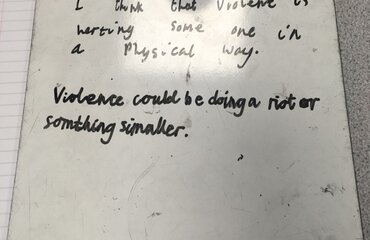 I think that Violence is
herting some one in
a Physical way.
Violence could be doing a riot or
somthing simaller.